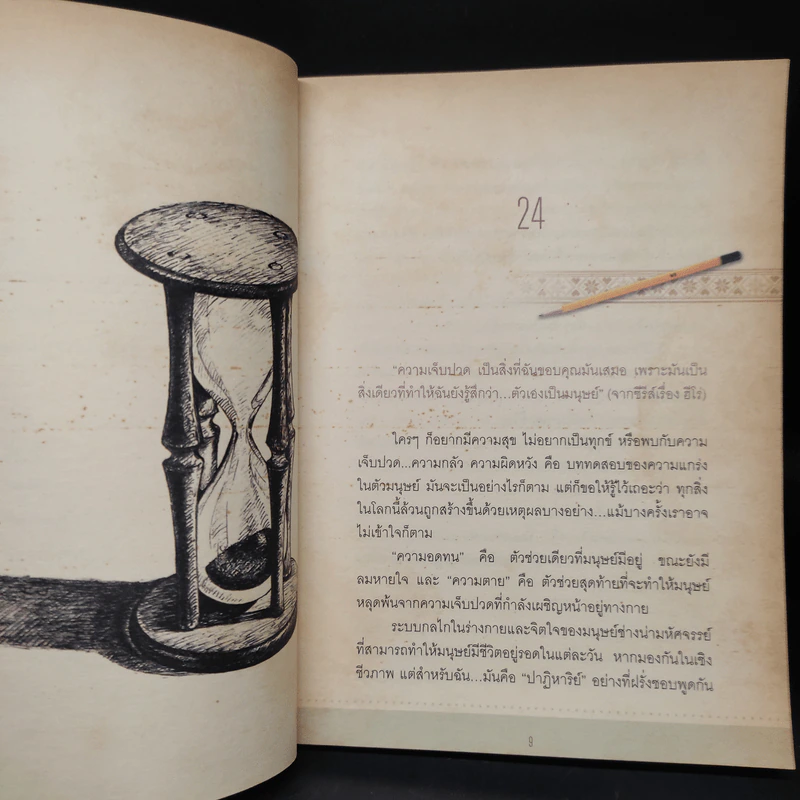 24
“ความเจ็บปวด เป็นสิ่งที่ฉันขอบคุณมันเสมอ เพราะมันเป็น
สิ่งเดียวที่ทำให้ฉันยังรู้สึกว่า...ตัวเองเป็นมนุษย์” (จากซีรีส์เรื่อง ฮีโร่)
ใครๆ ก็อยากมีความสุข ไม่อยากเป็นทุกข์ หรือพบกับความ
เจ็บปวด...ความกลัว ความผิดหวัง คือ บททดสอบของความแกร่ง
ในตัวมนุษย์ มันจะเป็นอย่างไรก็ตาม แต่ก็ขอให้รู้ไว้เถอะว่า ทุกสิ่ง
ในโลกนี้ล้วนถูกสร้างขึ้นด้วยเหตุผลบางอย่าง...แม้บางครั้งเราอาจ
ไม่เข้าใจก็ตาม
“ความอดทน” คือ ตัวช่วยเดียวที่มนุษย์มีอยู่ ขณะยังมี
ลมหายใจ และ “ความตาย” คือ ตัวช่วยสุดท้ายที่จะทำให้มนุษย์
หลุดพ้นจากความเจ็บปวดที่กำลังเผชิญหน้าอยู่ทางกาย
ระบบกลไกในร่างกายและจิตใจของมนุษย์ช่างน่ามหัศจรรย์
ที่สามารถทำให้มนุษย์มีชีวิตอยู่รอดในแต่ละวัน หากมองกันในเชิง
ชีวภาพ แต่สำหรับฉัน...มันคือ “ปาฏิหาริย์” อย่างที่ฝรั่งชอบพูดกัน
9